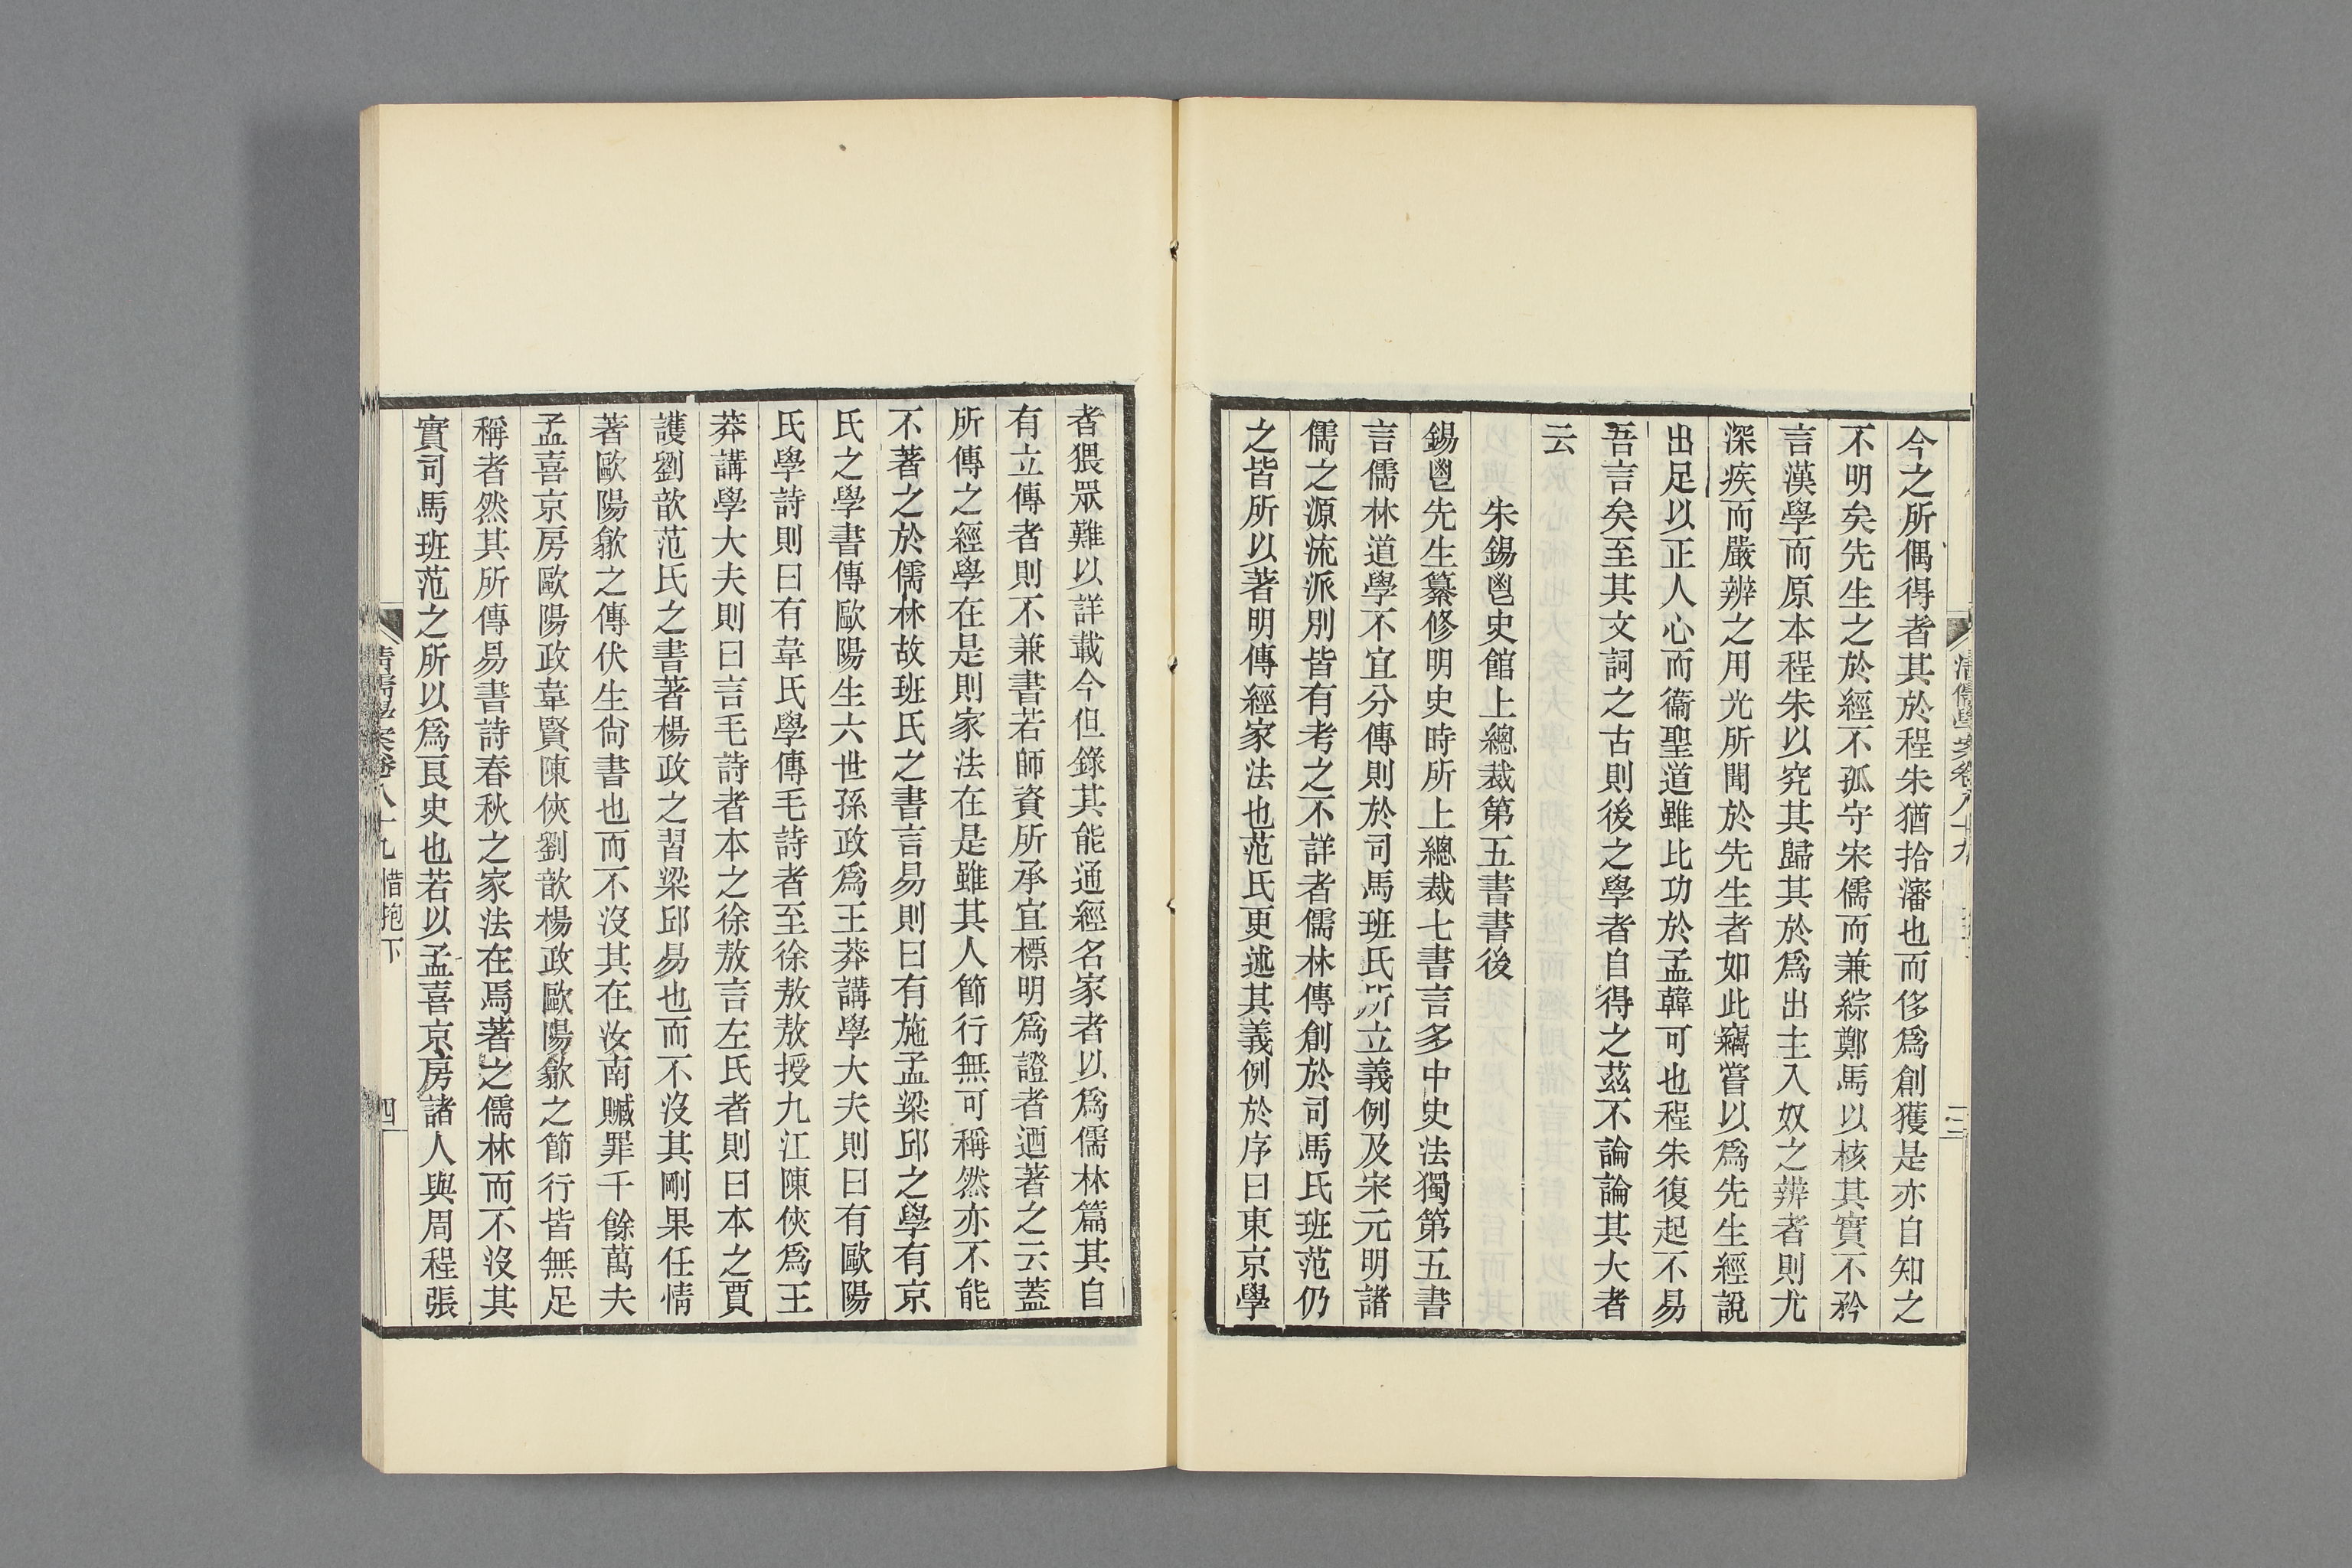 今之所偶得者其於程朱猶拾瀋也而侈爲創獲是亦自知之
不明矣先生之於經不孤守宋儒而兼綜鄭馬以核其實不矜
言漢學而原本程朱以究其歸其於爲出主入奴之辨者則尤
深疾而嚴辨之用光所聞於先生者如此竊嘗以爲先生經說
出足以正人心而衞聖道雖比功於孟韓可也程朱復起不易
吾言矣至其文詞之古則後之學者自得之茲不論論其大者
云
朱錫鬯史館上總裁第五書書後
錫鬯先生纂修明史時所上總裁七書言多中史法獨第五書
言儒林道學不宜分傳則於司馬班氏所立義例及宋元明諸
儒之源流派別皆有考之不詳者儒林傳創於司馬氏班范仍
之皆所以著明傳經家法也范氏更述其義例於序曰東京學
者猥眾難以詳載今但錄其能通經名家者以爲儒林篇其自
有立傳者則不兼書若師資所承宜標明爲證者迺著之云蓋
所傳之經學在是則家法在是雖其人節行無可稱然亦不能
不著之於儒林故班氏之書言易則曰有施孟梁邱之學有京
氏之學書傳歐陽生六世孫政爲王莽講學大夫則曰有歐陽
氏學詩則曰有韋氏學傳毛詩者至徐敖敖授九江陳俠爲王
莽講學大夫則曰言毛詩者本之徐敖言左氏者則曰本之賈
護劉歆范氏之書著楊政之習梁邱易也而不沒其剛果任情
著歐陽歙之傳伏生尙書也而不沒其在汝南贓罪千餘萬夫
孟喜京房歐陽政韋賢陳俠劉歆楊政歐陽歙之節行皆無足
稱者然其所傳易書詩春秋之家法在焉著之儒林而不沒其
實司馬班范之所以爲良史也若以孟喜京房諸人與周程張
清儒學案卷八十九 惜抱下
四